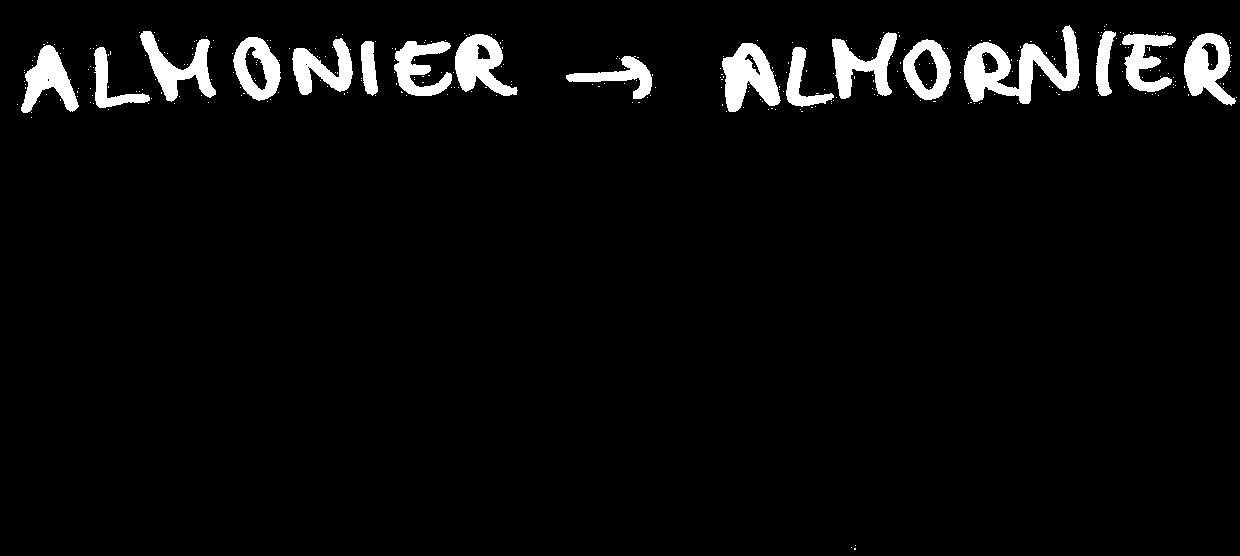 ALMONIER → ALMORNIER